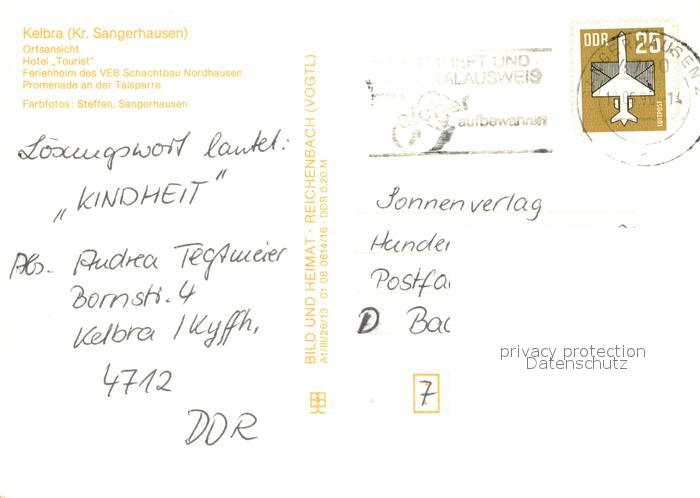 Kelbra (Kr. Sangerhausen)
Ortsansicht
Hotel „Tourist"
Ferienheim des VEB Schachtbau Nordhausen
Promenade an der Talsperre
Farbfotos: Steffen, Sangerhausen
Lösungswort lautet:
„KINDHEIT"
Abs. Andrea Tegtmeier
Bornstr. 4
Kelbra / Kyffh.
4712
DDR
BILD UND HEIMAT · REICHENBACH (VOGTL)
A1/III/26/13 · 01 08 0614/16 · DDR 0,20 M
HEFT UND
ALAUSWEIS
aufbewahren
DDR 25
LUFTPOST
Sonnenverlag
Postfa
D Bad
7
privacy protection
Datenschutz